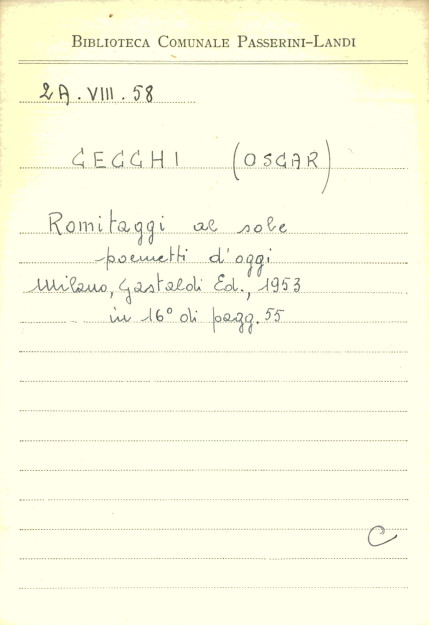 BIBLIOTECA COMUNALE PASSERINI-LANDI
2A.VIII.58
CECCHI (OSCAR)
Romitaggi al sole
poemetti d'oggi
Milano, Gastaldi Ed., 1953
in 16° di pagg. 55
C